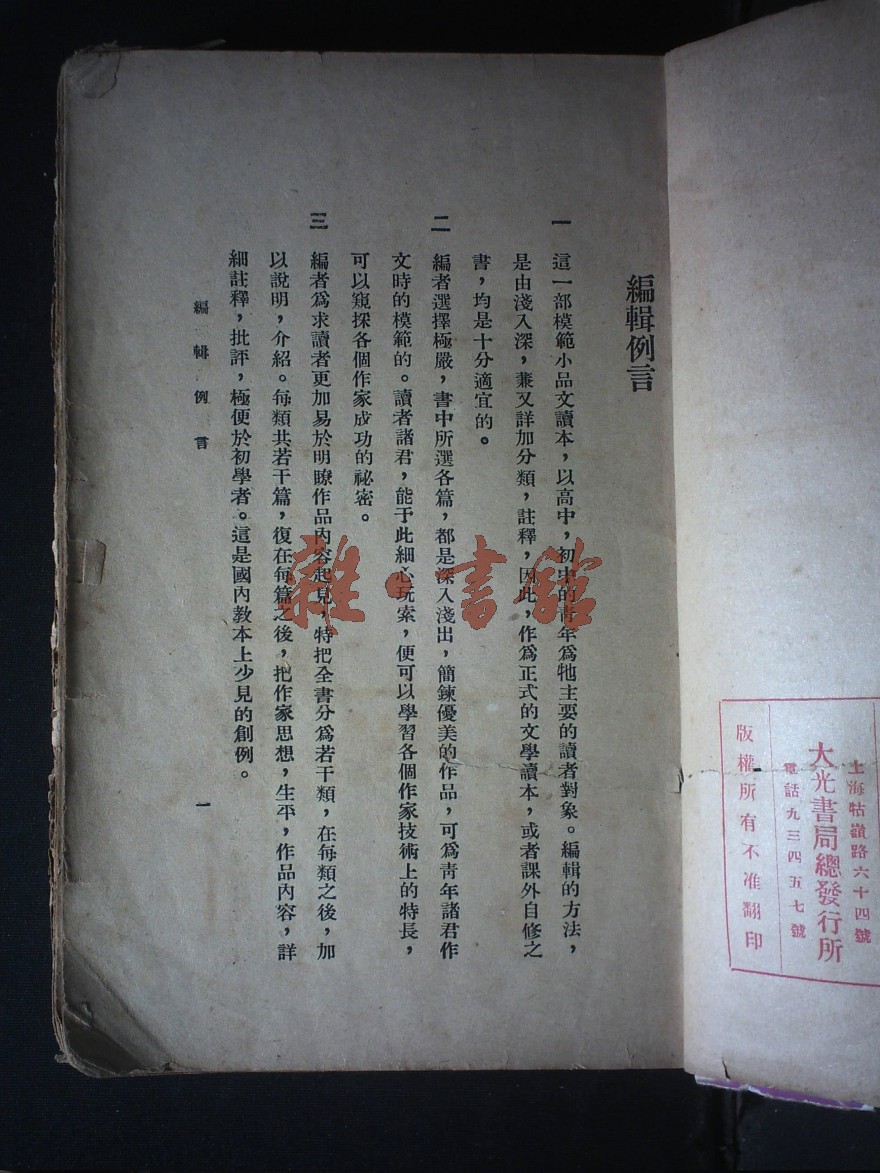 上海牯嶺路六十四號
大光書局總發行所
電話九三四五七號
版權所有不准翻印
編輯例言
一 這一部模範小品文讀本，以高中，初中的靑年爲牠主要的讀者對象。編輯的方法，
是由淺入深，兼又詳加分類，註釋，因此，作爲正式的文學讀本，或者課外自修之
書，均是十分適宜的。
二 編者選擇極嚴，書中所選各篇，都是深入淺出，簡鍊優美的作品，可爲靑年諸君作
文時的模範的。讀者諸君，能于此細心玩索，便可以學習各個作家技術上的特長，
可以窺探各個作家成功的祕密。
三 編者爲求讀者更加易於明瞭作品內容起見，特把全書分爲若干類，在每類之後，加
以說明，介紹。每類共若干篇，復在每篇之後，把作家思想，生平，作品內容，詳
細註釋，批評，極便於初學者。這是國內敎本上少見的創例。
編輯例言
一
雜·書館